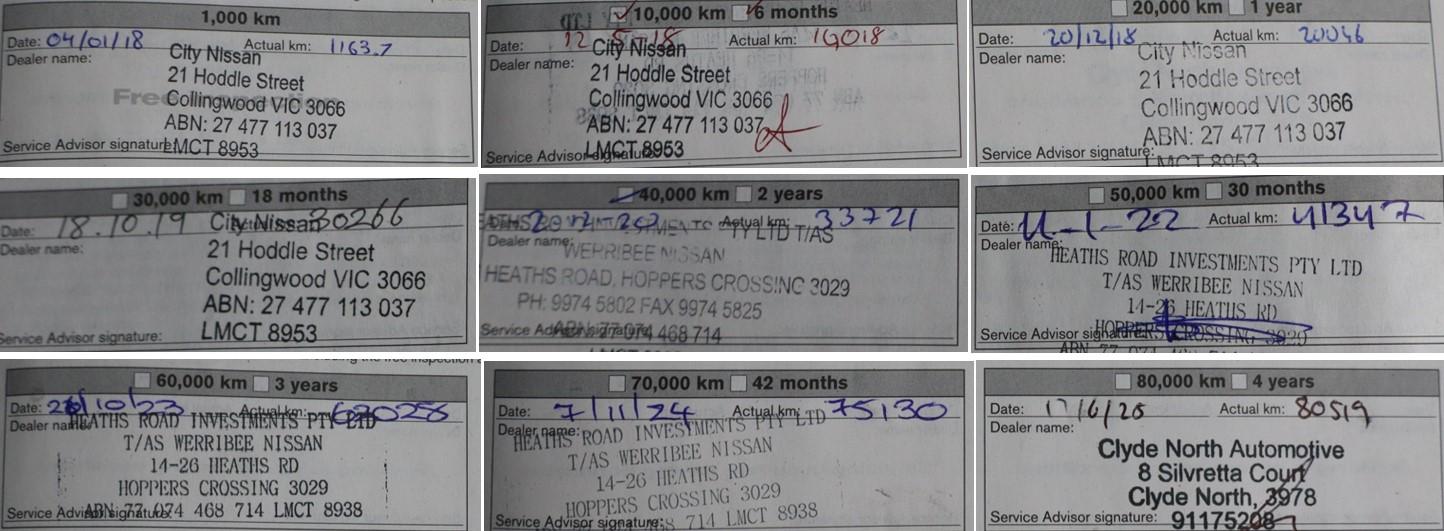 1,000 km
Date: 04/01/18 Actual km: 1163.7
Dealer name: City Nissan
21 Hoddle Street
Collingwood VIC 3066
ABN: 27 477 113 037
Service Advisor signature: LMCT 8953
10,000 km 6 months
Date: 12 Actual km:
Dealer name: City Nissan
21 Hoddle Street
Collingwood VIC 3066
ABN: 27 477 113 037
Service Advisor signature LMCT 8953
20,000 km 1 year
Date: 20/12/18 Actual km: 20046
Dealer name: City Nissan
21 Hoddle Street
Collingwood VIC 3066
ABN: 27 477 113 037
Service Advisor signature: LMCT 8953
30,000 km 18 months
Date: 18.10.19 City Nissan 30266
Dealer name: 21 Hoddle Street
Collingwood VIC 3066
ABN: 27 477 113 037
Service Advisor signature: LMCT 8953
40,000 km 2 years
Actual km: 33721
PTY LTD T/AS
Dealer name: WERRIBEE NISSAN
HEATHS ROAD, HOPPERS CROSSING 3029
PH: 9974 5802 FAX 9974 5825
Service Advisor signature ABN 77 074 468 714
50,000 km 30 months
Date: 11-1-22 Actual km: 41347
Dealer name: HEATHS ROAD INVESTMENTS PTY LTD
T/AS WERRIBEE NISSAN
14-26 HEATHS RD
Service Advisor signature HOPPERS CROSSING 3029
ABN 77 074 468 714
60,000 km 3 years
Date: /10/23 Actual km:
Dealer name HEATHS ROAD INVESTMENTS PTY LTD
T/AS WERRIBEE NISSAN
14-26 HEATHS RD
HOPPERS CROSSING 3029
Service Advisor signature ABN 77 074 468 714 LMCT 8938
70,000 km 42 months
Date: 7/11/24 Actual km: 75130
Dealer name: HEATHS ROAD INVESTMENTS PTY LTD
T/AS WERRIBEE NISSAN
14-26 HEATHS RD
HOPPERS CROSSING 3029
Service Advisor signature: 714 LMCT 8938
80,000 km 4 years
Date: 17/6/25 Actual km: 80519
Dealer name:
Clyde North Automotive
8 Silvretta Court
Clyde North, 3978
Service Advisor signature: 91175208